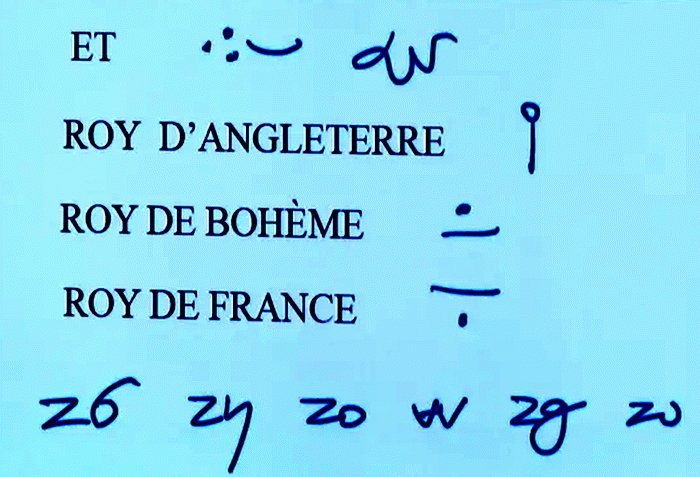 ET
ROY D’ANGLETERRE
ROY DE BOHÈME
ROY DE FRANCE
z6 zy zo zg